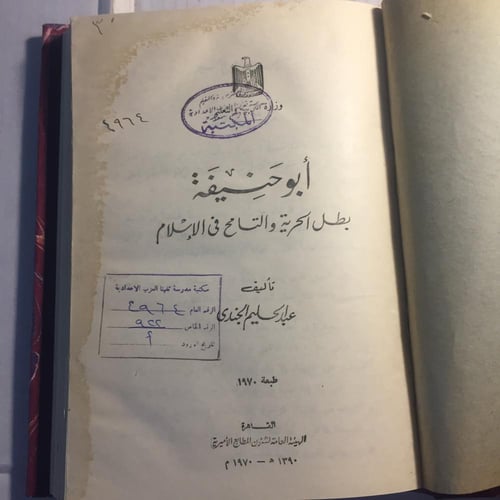 ٣٠
وزارة التربية والتعليم
المكتبة
٤٩٦٤
أبو حنيفة
بطل الحرية والتسامح في الإسلام
تأليف
عبد الحليم الجندي
مكتبة مدرسة تفهنا العزب الاعدادية
الرقم العام ٤٩٦٤
الرقم الخاص ٩٢٢
تاريخ الورود أ
طبعة ١٩٧٠
القاهرة
الهيئة العامة لشئون المطابع الأميرية
١٣٩٠ هـ - ١٩٧٠ م